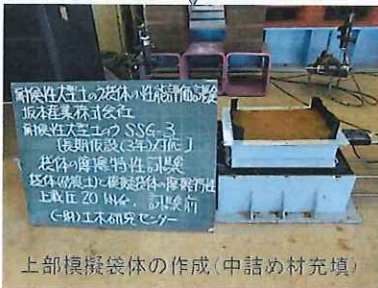 耐候性大型土のう袋体の性能評価試験
坂本産業株式会社
耐候性大型土のう SSG-3
[長期仮設(3年)対応]
袋体の摩擦特性試験
袋体(砂質土)と模擬袋体の摩擦特性
上載圧 20 kN/㎡ 試験前
(一財)土木研究センター
上部模擬袋体の作成(中詰め材充填)